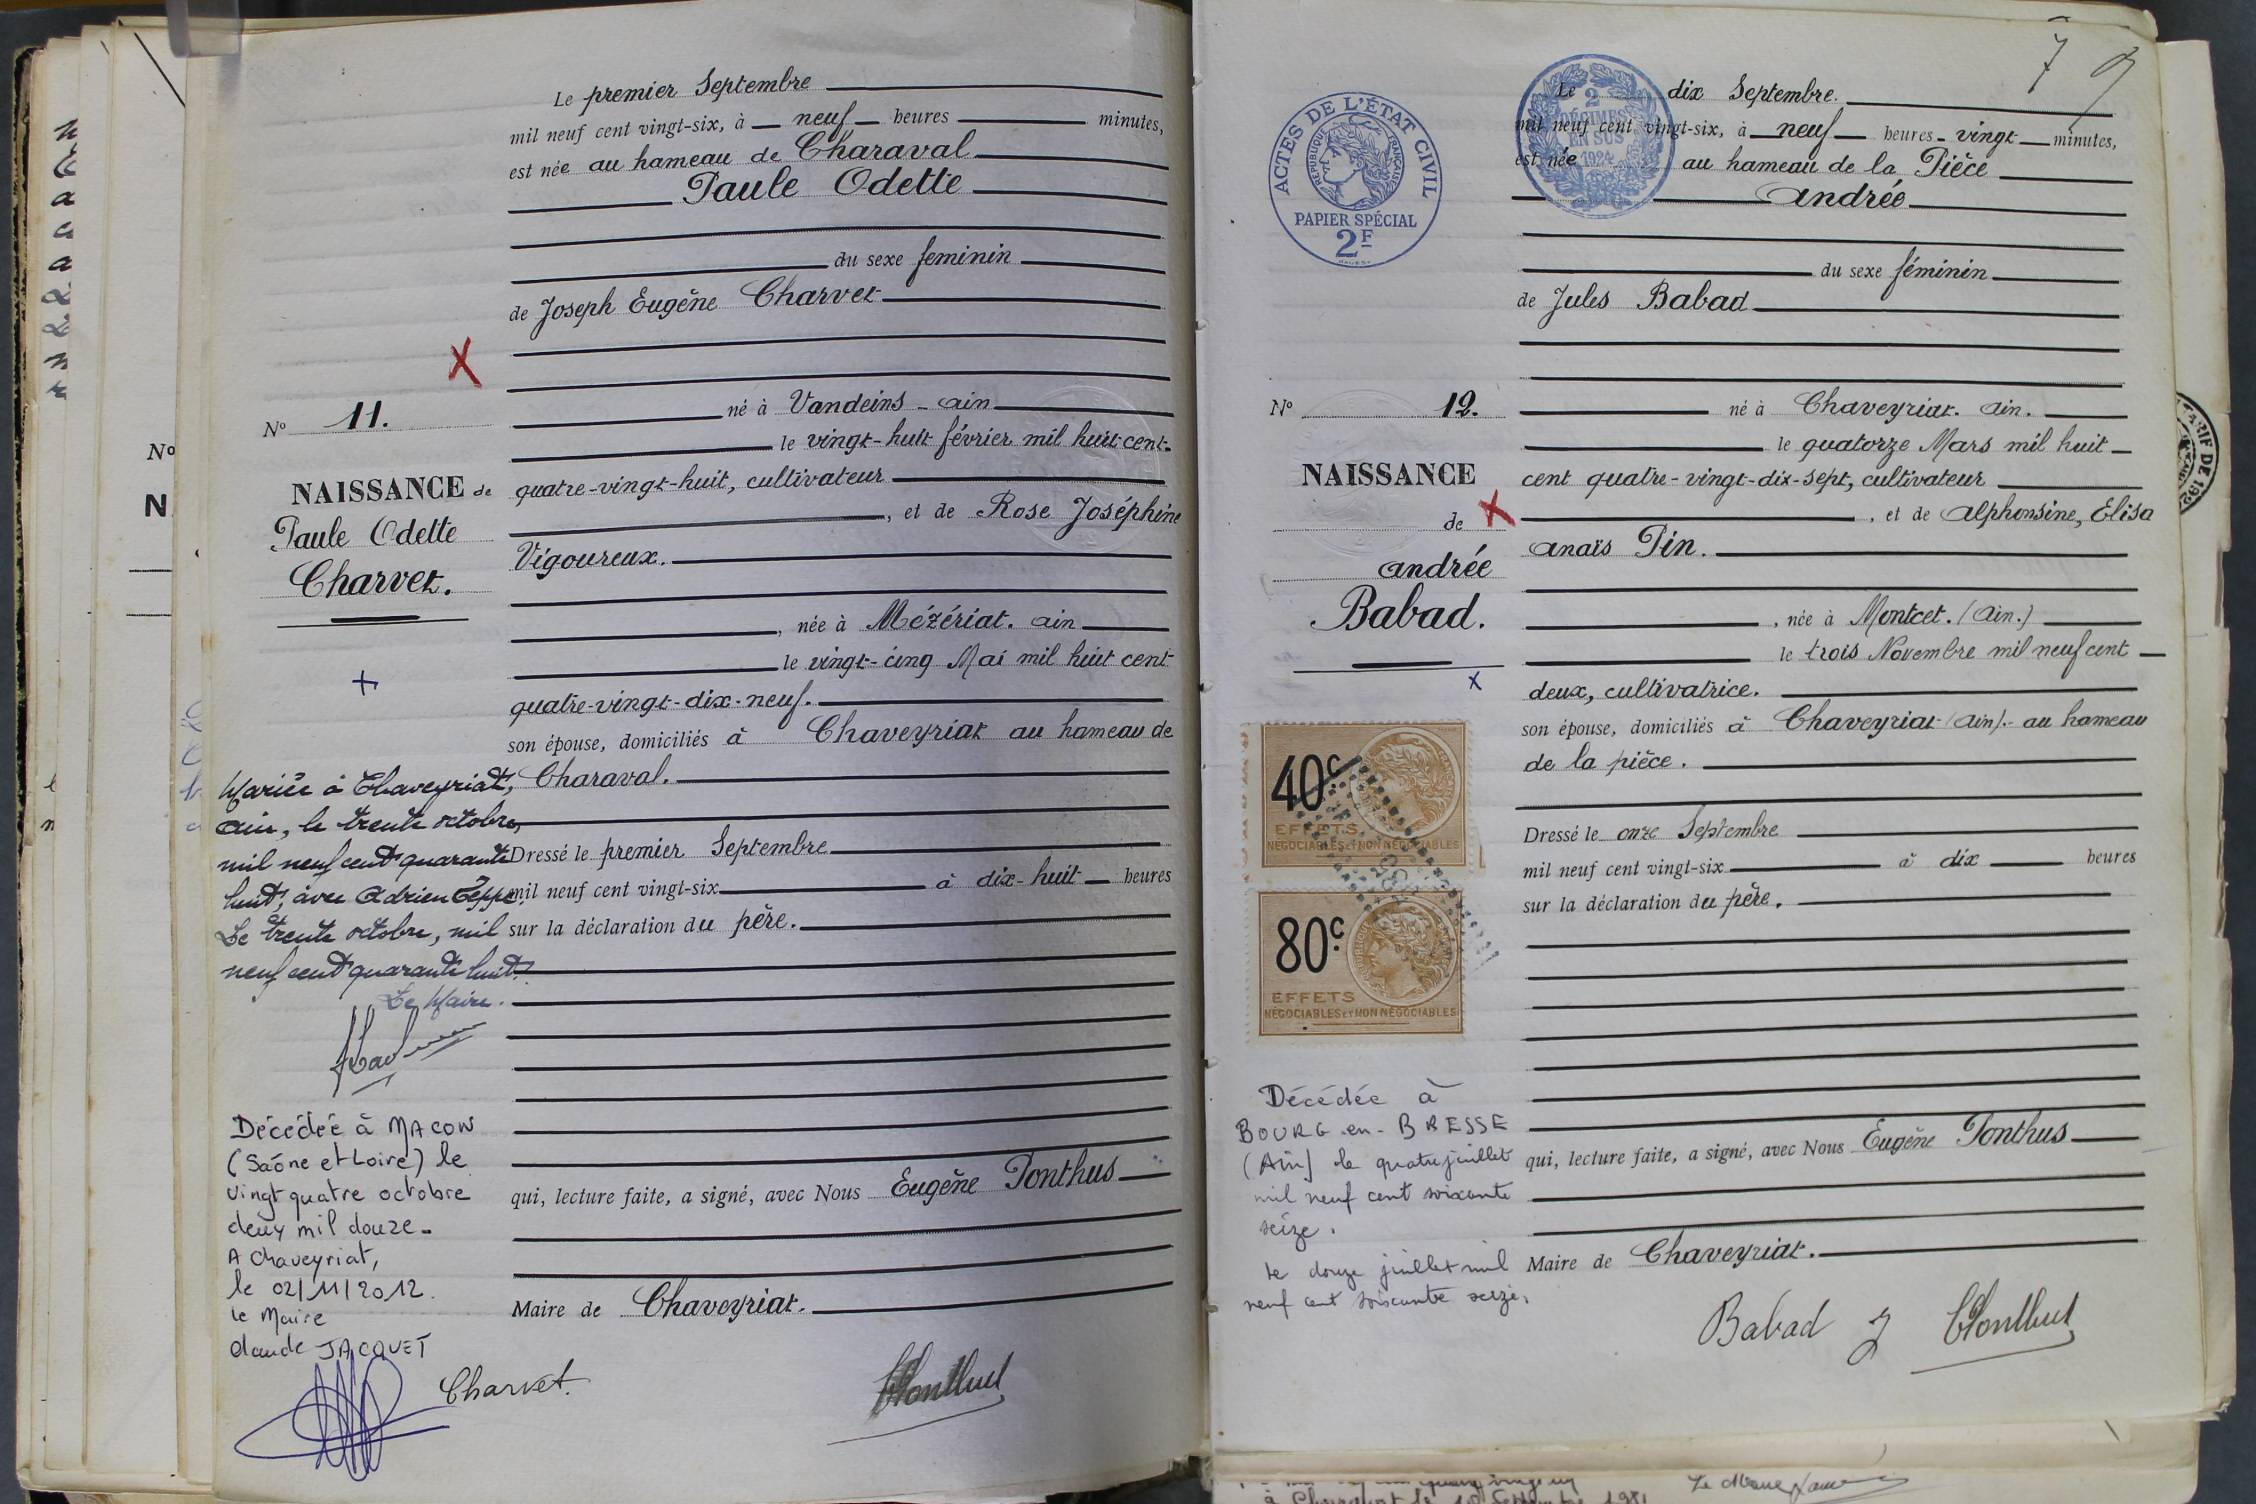 Le premier Septembre
mil neuf cent vingt-six, à neuf heures minutes,
est née au hameau de Charaval
Paule Odette
du sexe feminin
de Joseph Eugène Charvet
né à Vandeins - ain
le vingt-huit février mil huit cent-
quatre-vingt-huit, cultivateur
, et de Rose Joséphine
Vigoureux.
, née à Mézériat. ain
le vingt-cinq Mai mil huit cent
quatre-vingt-dix-neuf.
son épouse, domiciliés à Chaveyriat au hameau de
Charaval.
Dressé le premier Septembre
mil neuf cent vingt-six à dix-huit heures
sur la déclaration du père.
qui, lecture faite, a signé, avec Nous Eugène Ponthus
Maire de Chaveyriat.
Charvet.
EPonthus
Nº 11.
NAISSANCE de
Paule Odette
Charvet.
Mariée à Chaveyriat,
ain, le trente octobre,
mil neuf cent quarante
huit, avec Adrien Teppe.
Le trente octobre, mil
neuf cent quarante huit.
Le Maire.
Décédée à MACON
(Saône et Loire) le
vingt quatre octobre
deux mil douze.
A Chaveyriat,
le 02/11/2012.
le Maire
Claude JACQUET
Nº
N
7
ACTES DE L'ÉTAT CIVIL
RÉPUBLIQUE FRANÇAISE
PAPIER SPÉCIAL
2F
2
DÉCIMES
EN SUS
1924
Le dix Septembre.
mil neuf cent vingt-six, à neuf heures - vingt minutes,
est née au hameau de la Pièce
Andrée
du sexe féminin
de Jules Babad
né à Chaveyriat. ain.
le quatorze Mars mil huit
cent quatre-vingt-dix-sept, cultivateur
, et de Alphonsine, Elisa
Anaïs Pin.
, née à Montcet. (Ain.)
le trois Novembre mil neuf cent
deux, cultivatrice.
son épouse, domiciliés à Chaveyriat (Ain).- au hameau
de la pièce.
Dressé le onze Septembre
mil neuf cent vingt-six à dix heures
sur la déclaration du père.
qui, lecture faite, a signé, avec Nous Eugène Ponthus
Maire de Chaveyriat.
Babad J
EPonthus
Nº 12.
NAISSANCE
de
Andrée
Babad.
40c
EFFETS
NÉGOCIABLES ET NON NÉGOCIABLES
80c
EFFETS
NÉGOCIABLES ET NON NÉGOCIABLES
Décédée à
BOURG-en-BRESSE
(Ain) le quatre juillet
mil neuf cent soixante
seize.
Le douze juillet mil
neuf cent soixante seize.